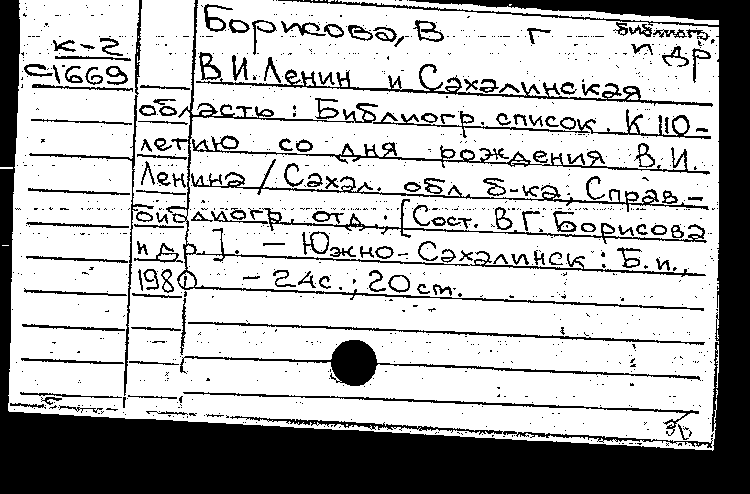 Борисова, В Г библиогр.
и др
К-2
С-1669
В.И.Ленин и Сахалинская
область : Библиогр. список. К 110-
летию со дня рождения В.И.
Ленина / Сахал. обл. б-ка; Справ.-
библиогр. отд.; [Сост. В.Г. Борисова
и др.]. – Южно-Сахалинск : Б.и.,
1980 – 24с.; 20 cm.